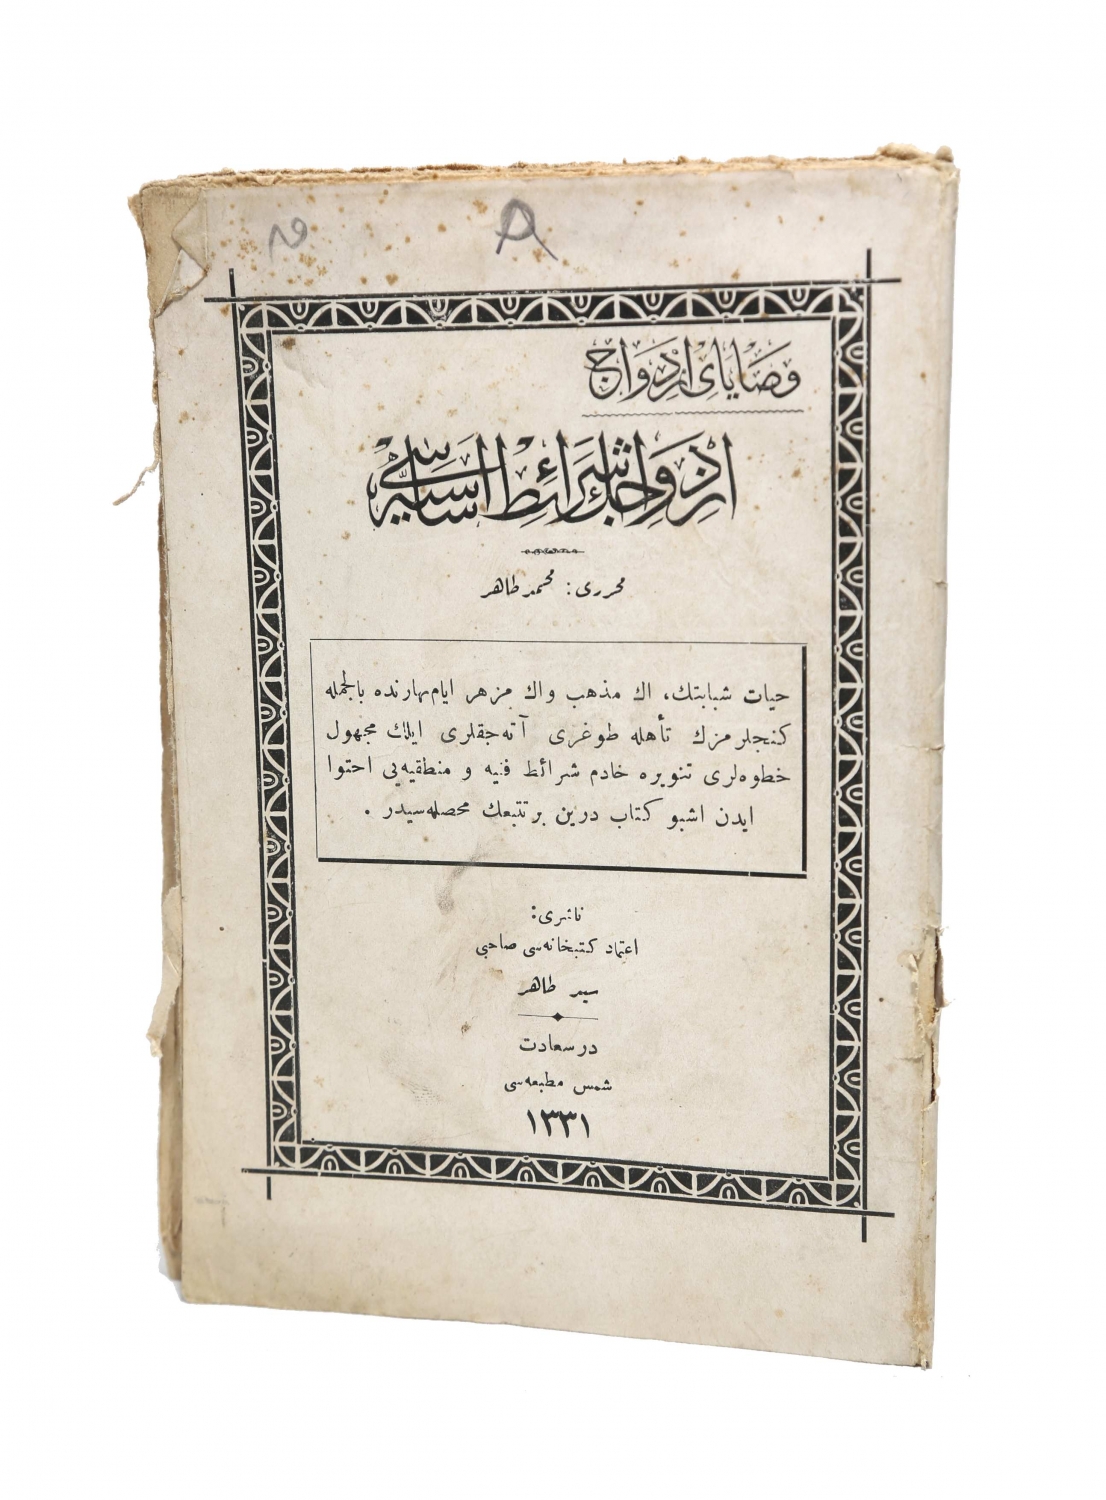 وصایای ازدواج
ازدواجك شرائط اساسیه‌سی
محرری : محمد طاهر
حیات شبابتك، اك مذهب واك مزهر ایام بهارنده بالجمله
كنجلرمزك تأهله طوغری آته‌جقلری ایلك مجهول
خطوه‌لری تنویره خادم شرائط فنیه و منطقیه‌یی احتوا
ایدن اشبو كتاب درین بر تتبعك محصله‌سیدر .
ناشری :
اعتماد كتبخانه‌سی صاحبی
سید طاهر
درسعادت
شمس مطبعه‌سی
١٣٣١